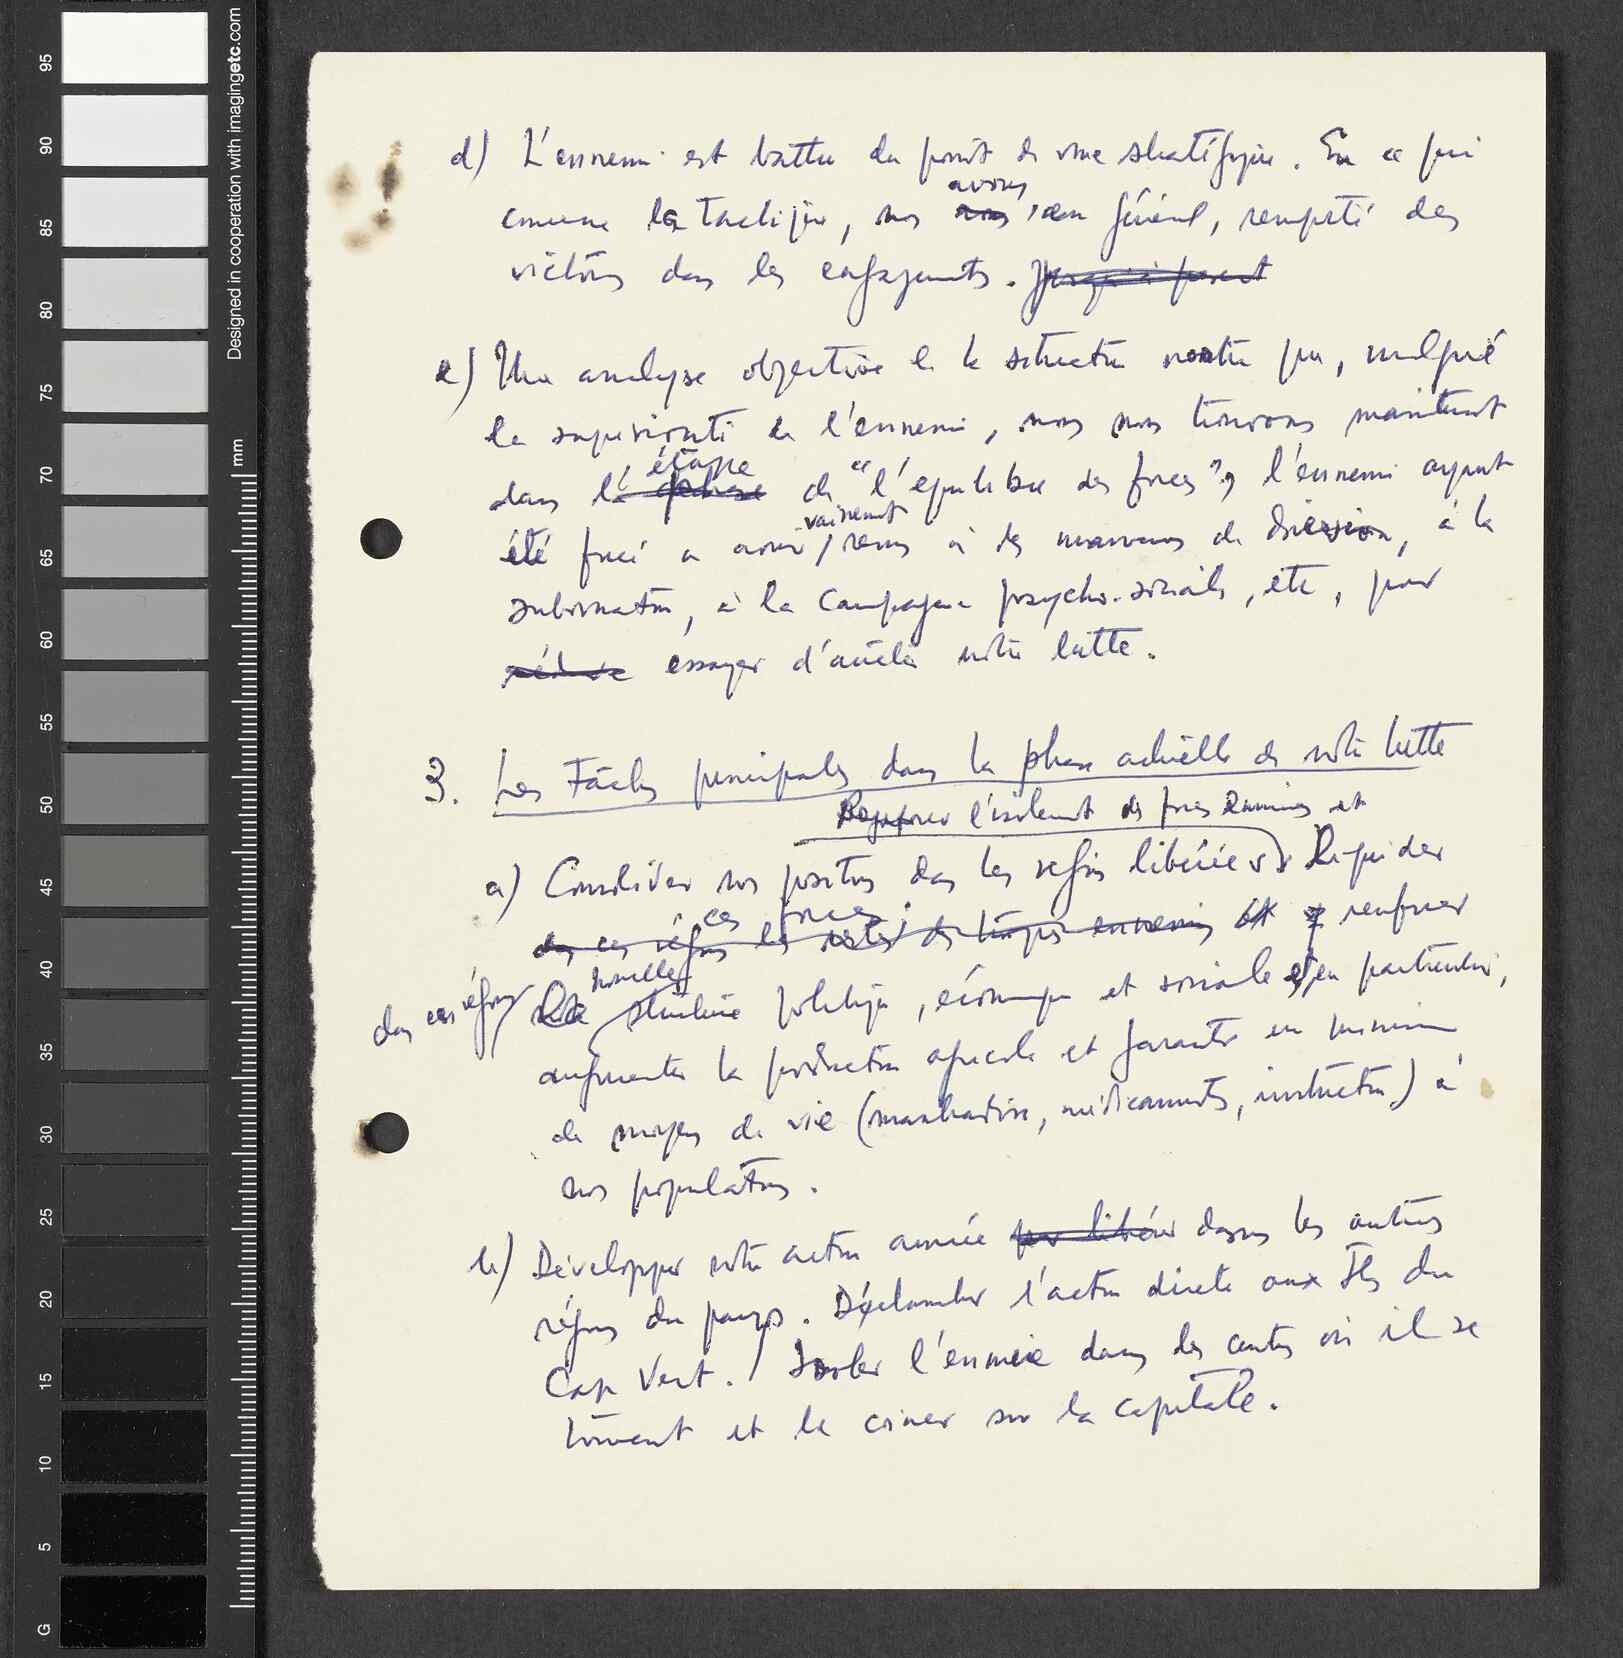 95
90
85
80
75
70
65
60
55
50
45
40
35
30
25
20
15
10
5
G
Designed in cooperation with imagingetc.com
mm
d) L'ennemi est battu du point de vue stratégique. En ce qui
avons
concerne la tactique, nous avons, en général, remporté des
victoires dans les engagements. Jusqu'à présent
e) Une analyse objective de la situation montre que, malgré
la supériorité de l'ennemi, nous nous trouvons maintenant
étape
dans la phase de "l'équilibre des forces", l'ennemi ayant
vainement
été forcé a avoir recours à des manœuvres de diversion, à la
subornation, à la campagne psycho-sociale, etc, pour
réduire essayer d'arrêter notre lutte.
3. Les Tâches principales dans la phase actuelle de notre lutte
l'isolement des forces ennemies et
a) Consolider nos positions dans les régions libérées. Liquider
ces forces
dans ces régions les restes des troupes ennemies et renforcer
nouvelle
dans ces régions la structure politique, économique et sociale et, en particulier,
augmenter la production agricole et garantir un minimum
de moyens de vie (marchandises, médicaments, instruction) à
nos populations.
b) Développer notre action armée pour libérer dans les autres
régions du pays. Déclancher l'action directe aux Iles du
Cap Vert. Isoler l'ennemie dans les centres où il se
trouvent et le coincer sur la capitale.